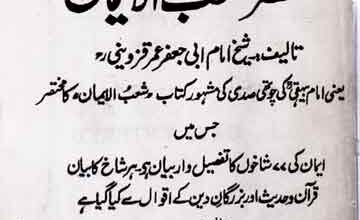 شعب الایمان
تالیف: شیخ امام ابی جعفر عمر قزوینی رح
یعنی امام بیہقی کی چوتھی صدی کی مشہور کتاب "شعب الایمان" کا مختصر
جس میں
ایمان کی ۷۷ شاخوں کا تفصیل وار بیان ہو۔ ہر شاخ کا بیان
قرآن و حدیث اور بزرگان دین کے اقوال سے کیا گیا ہے